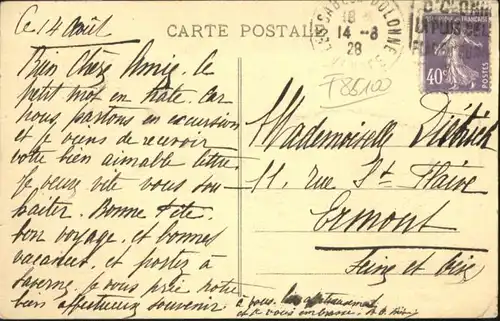 Ce 14 Août
CARTE POSTALE
LES SABLES D'OLONNE
18
14-8
28
VENDÉE
LA PLUS BELLE
40c
F85100
Bien Chère Amie. Ce
petit mot en hate. Car
nous partons en excursion
et je viens de recevoir
votre bien aimable lettre.
Je veux vite vous sou-
haiter. Bonne Fête.
bon voyage. et bonnes
vacances. et portez à
Saverne. Je vous prie notre
bien affectueux souvenir.
à vous bien affectueusement
et je vous embrasse.
Mademoiselle Dietrich
11, rue St Flaive
Ermont
Seine et Oise